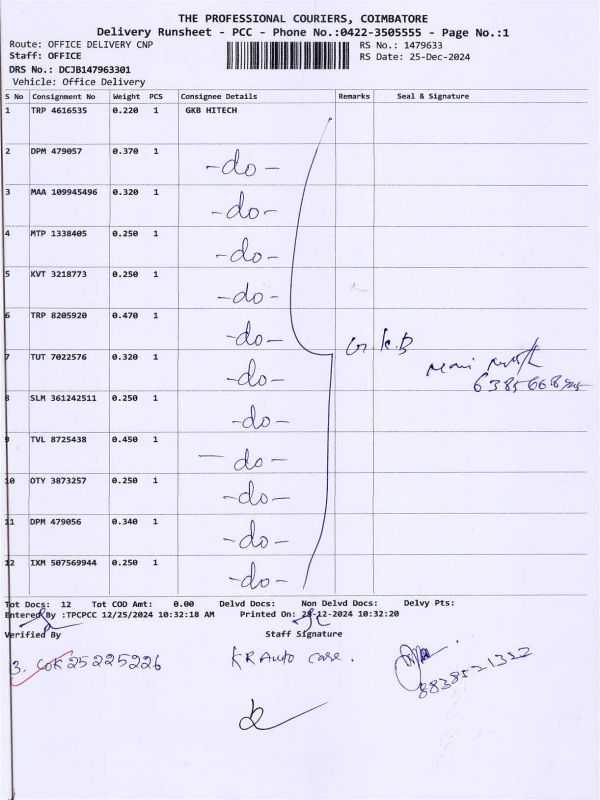 THE PROFESSIONAL COURIERS, COIMBATORE
Delivery Runsheet - PCC - Phone No.:0422-3505555 - Page No.:1
Route: OFFICE DELIVERY CNP RS No.: 1479633
Staff: OFFICE RS Date: 25-Dec-2024
DRS No.: DCJB147963301
Vehicle: Office Delivery
S No Consignment No Weight PCS Consignee Details Remarks Seal & Signature
1 TRP 4616535 0.220 1 GKB HITECH
2 DPM 479057 0.370 1 -do-
3 MAA 109945496 0.320 1 -do-
4 MTP 1338405 0.250 1 -do-
5 KVT 3218773 0.250 1 -do-
6 TRP 8205920 0.470 1 -do-
G.K.B
7 TUT 7022576 0.320 1 -do-
8 SLM 361242511 0.250 1 -do-
9 TVL 8725438 0.450 1 -do-
10 OTY 3873257 0.250 1 -do-
11 DPM 479056 0.340 1 -do-
12 IXM 507569944 0.250 1 -do-
Tot Docs: 12 Tot COD Amt: 0.00 Delvd Docs: Non Delvd Docs: Delvy Pts:
Entered By :TPCPCC 12/25/2024 10:32:18 AM Printed On: 25-12-2024 10:32:20
Verified By Staff Signature
3. COK 25225226 KR Auto case.